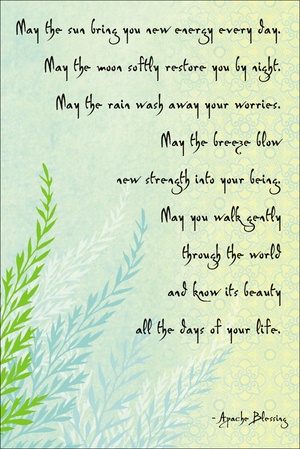 May the sun bring you new energy every day.
May the moon softly restore you by night.
May the rain wash away your worries.
May the breeze blow
new strength into your being.
May you walk gently
through the world
and know its beauty
all the days of your life.
- Apache Blessing